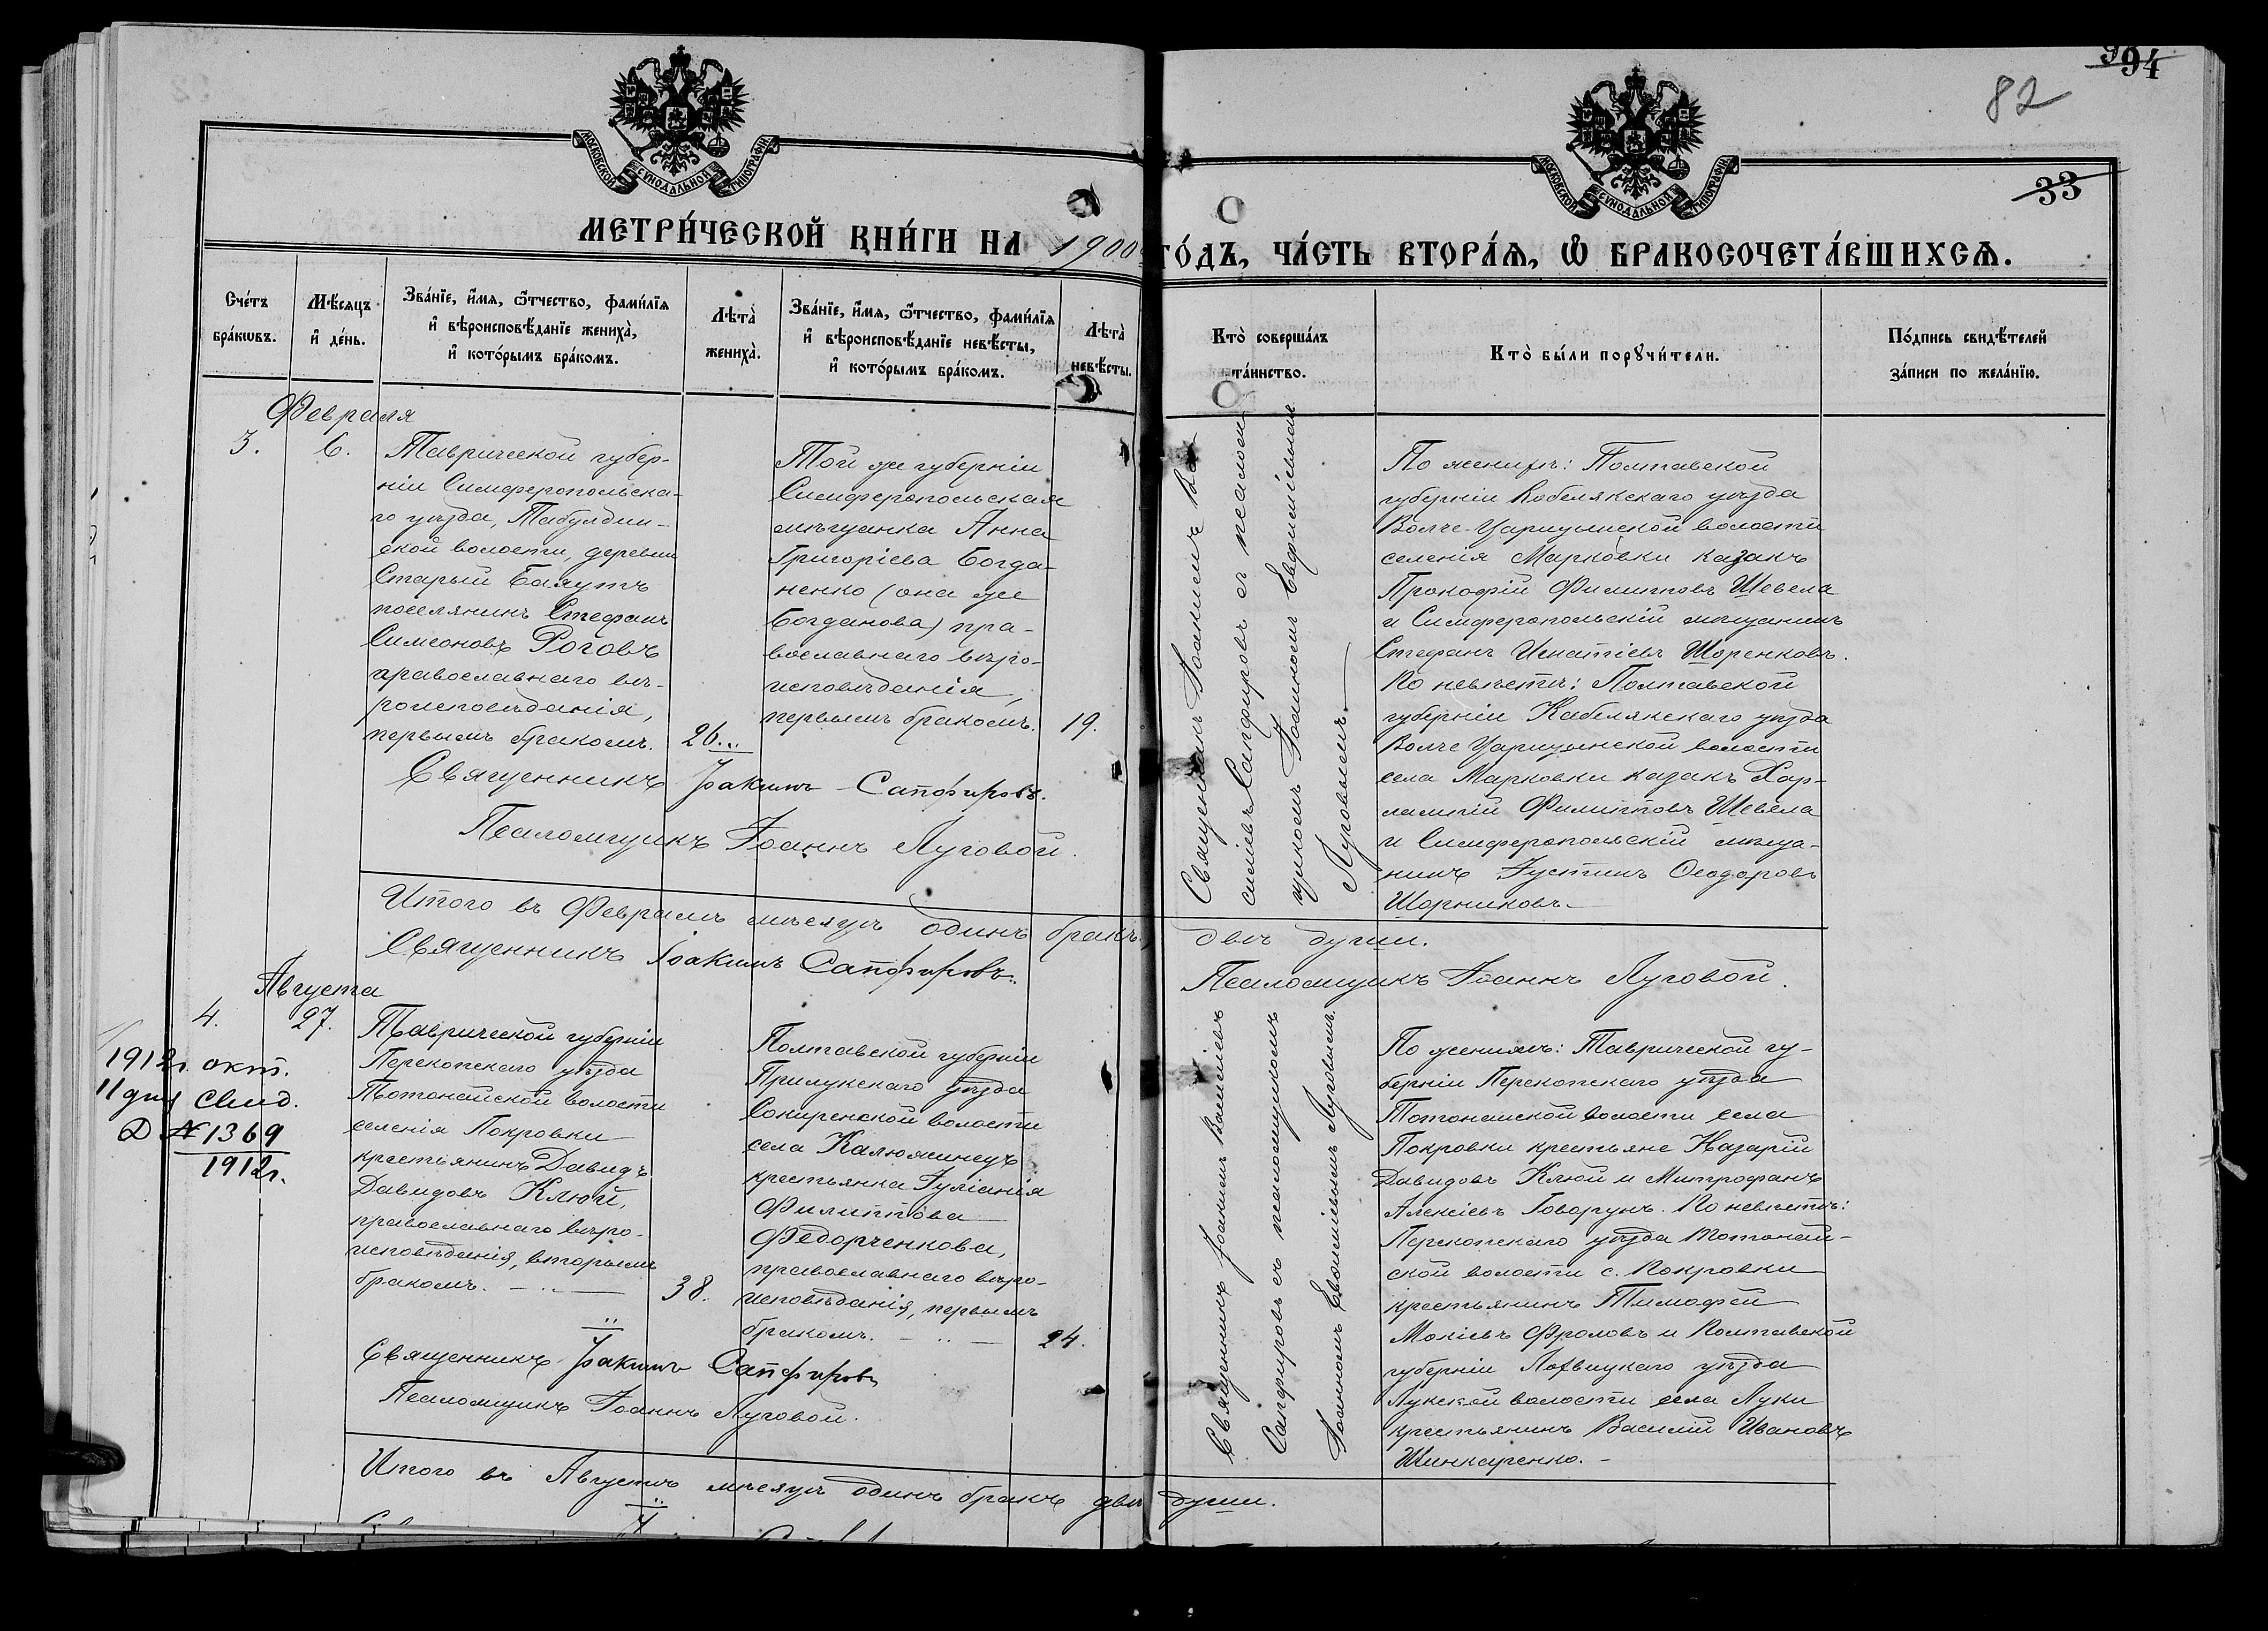 94
82
33
МОСКОВСКОЙ СѴНОДАЛЬНОЙ ТИПОГРАФІИ
МОСКОВСКОЙ СѴНОДАЛЬНОЙ ТИПОГРАФІИ
МЕТРИ́ЧЕСКОЙ КНИ́ГИ НА 1900 ГО́ДЪ, ЧА́СТЬ ВТОРА́Я, Ѽ БРАКОСОЧЕТА́ВШИХСЯ.
Сче́тъ
бра́кѡвъ.
Мѣ́сяцъ
и҆ де́нь.
Зва́нїе, и҆́мя, ѻ҆́тчество, фами́лїя
и҆ вѣроисповѣ́данїе жениха̀,
и҆ кото́рымъ бра́комъ.
Лѣта̀
жениха̀.
Зва́нїе, и҆́мя, ѻ҆́тчество, фами́лїя
и҆ вѣроисповѣ́данїе невѣ́сты,
и҆ кото́рымъ бра́комъ.
Лѣта̀
невѣ́сты.
Кто̀ соверша́лъ
та́инство.
Кто̀ бы́ли порꙋчи́тели.
По́дпись свидѣ́телей
за́писи по жела́нїю.
Февраля
3.
6.
Таврической губер-
ніи Симферопольска-
го уѣзда, Табулдин-
ской волости, деревни
Старый Баяутъ
поселянинъ Стефанъ
Симеоновъ Роговъ
православнаго вѣ-
роисповѣданія,
первымъ бракомъ.
26.
Той же губерніи
Симферопольская
мѣщанка Анна
Григоріева Богда-
ненко (она же
Богданова) пра-
вославнаго вѣро-
исповѣданія,
первымъ бракомъ.
19.
Священникъ Іоакимъ Ва-
силіевъ Сапфировъ съ псалом-
щикомъ Іоанномъ Евфиміевымъ
Луговымъ.
По женихѣ: Полтавской
губерніи Кобелякскаго уѣзда
Волче-Царицынской волости
селенія Марковки казакъ
Прокофій Филипповъ Шевела
и Симферопольскій мѣщанинъ
Стефанъ Игнатіевъ Шоренковъ.
По невѣстѣ: Полтавской
губерніи Кабелякскаго уѣзда
Волче Царицынской волости
села Марковки казакъ Хар-
лампій Филипповъ Шевела
и Симферопольскій мѣща-
нинъ Іустинъ Ѳеодоровъ
Шорниковъ.
Священникъ Іоакимъ Сапфировъ.
Псаломщикъ Іоаннъ Луговой.
Итого въ Февралѣ мѣсяцѣ одинъ бракъ двѣ души.
Священникъ Іоакимъ Сапфировъ. Псаломщикъ Іоаннъ Луговой.
Августа
4.
27.
1912г. окт.
11 дня свид.
№ 1369
1912г.
Таврической губерніи
Перекопскаго уѣзда
Тотонайской волости
селенія Покровки
крестьянинъ Давидъ
Давидовъ Клюй,
православнаго вѣро-
исповѣданія, вторымъ
бракомъ.
38.
Полтавской губерніи
Прилукскаго уѣзда
Сокиренской волости
села Калюжинецъ
крестьянка Іуліанія
Филиппова
Федорченкова,
православнаго вѣро-
исповѣданія, первымъ
бракомъ.
24.
Священникъ Іоакимъ Василіевъ
Сапфировъ съ псаломщикомъ
Іоанномъ Евфиміевымъ Луговымъ.
По женихѣ: Таврической гу-
берніи Перекопскаго уѣзда
Тотонайской волости села
Покровки крестьяне Назарій
Давидовъ Клюй и Митрофанъ
Алексіевъ Говорунъ. По невѣстѣ:
Перекопскаго уѣзда Тотонай-
ской волости с. Покровки
крестьянинъ Тимофей
Мокіевъ Фроловъ и Полтавской
губерніи Лохвицкаго уѣзда
Лукской волости села Луки
крестьянинъ Василій Ивановъ
Шинкаренко.
Священникъ Іоакимъ Сапфировъ
Псаломщикъ Іоаннъ Луговой.
Итого въ Августѣ мѣсяцѣ одинъ бракъ двѣ души.